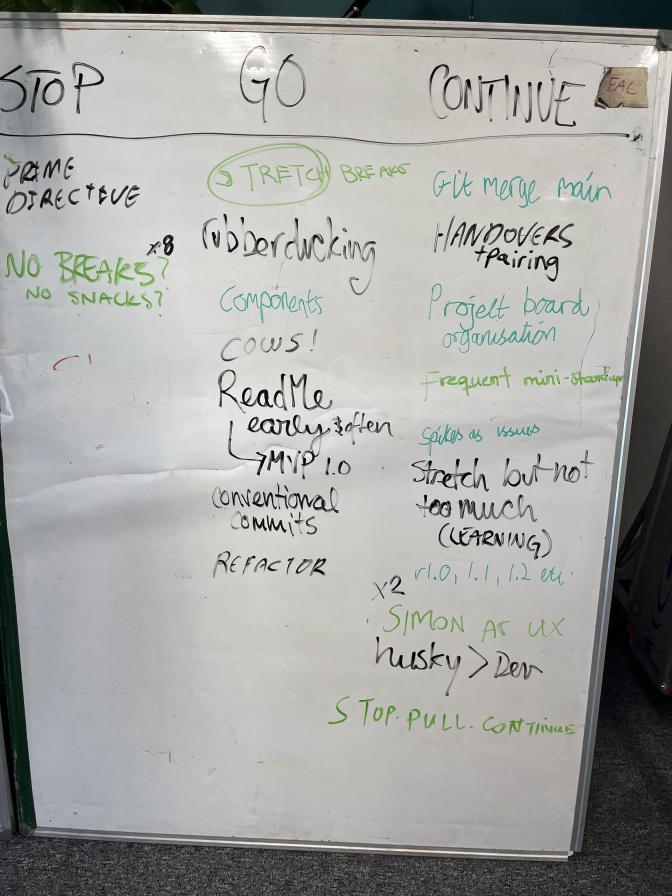 STOP
GO
CONTINUE
FAC
PRIME
DIRECTIVE
NO BREAKS? x8
NO SNACKS?
STRETCH BREAKS
rubberducking
Components
COWS!
ReadMe
early & often
MVP 1.0
conventional
commits
REFACTOR
Git merge main
HANDOVERS
+pairing
Projelt board
organisation
Frequent mini-standups
Spikes as issues
Stretch but not
too much
(LEARNING)
v1.0, 1.1, 1.2 etc.
x2
SIMON AS UX
husky > Dev
STOP. PULL. CONTINUE